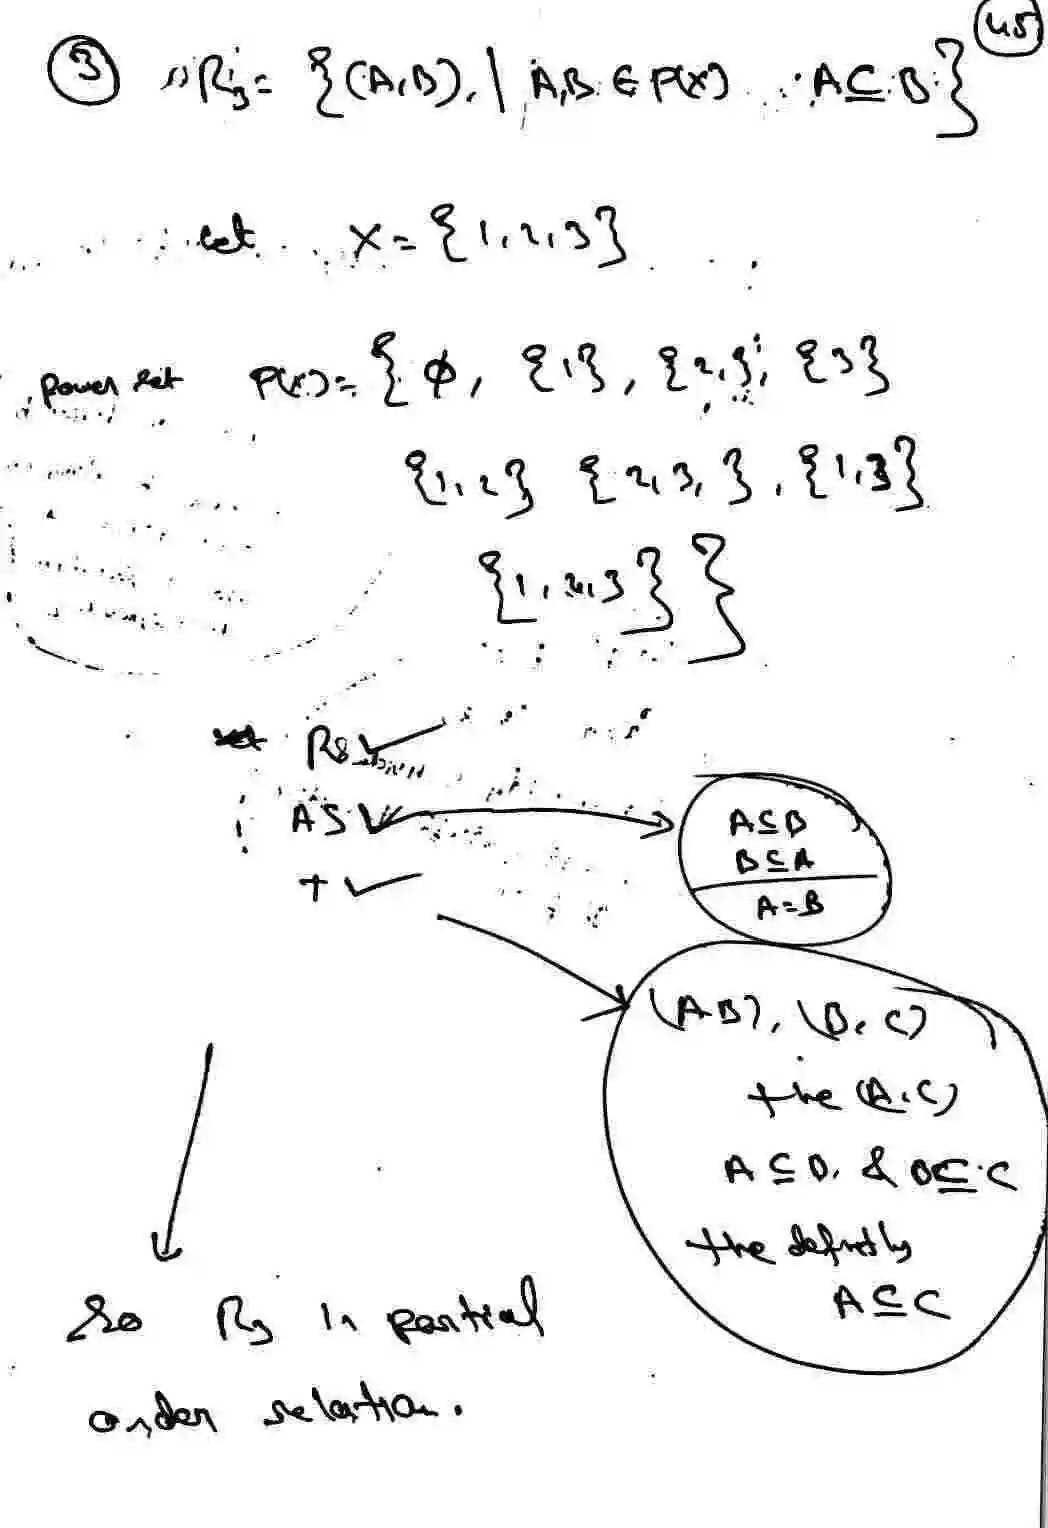 45
③ R₃ = {(A,B) | A,B ∈ P(X) A ⊆ B}
let X = {1,2,3}
power set P(X) = { φ, {1}, {2,}, {3}
{1,2} {2,3,}, {1,3}
{1,2,3} }
R ✓
AS ✓ → A ⊆ B
B ⊆ A
A = B
T ✓ → (A B), (B, C)
the (A, C)
A ⊆ B, & B ⊆ C
the definetly
A ⊆ C
So R₃ is partial
order relation.